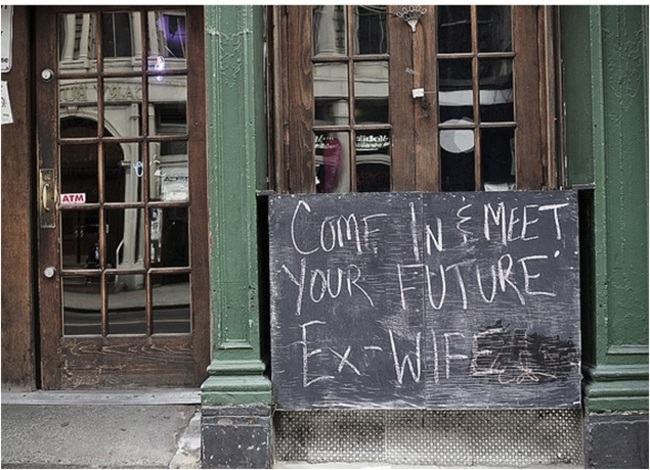 COME IN & MEET
YOUR FUTURE
EX-WIFE
ATM